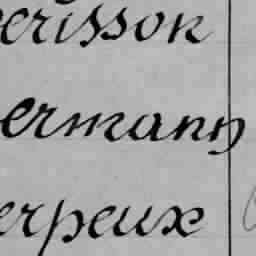 erisson
ermann
erpeux